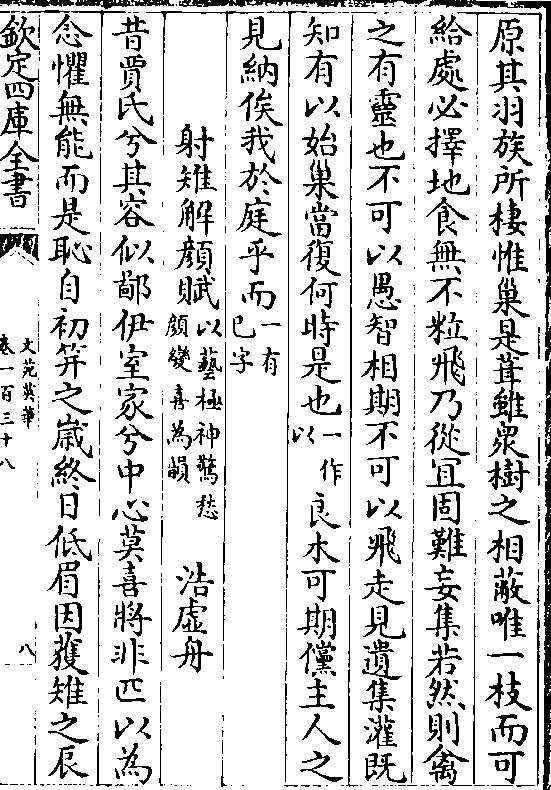 原其羽族所棲惟巢是葺雖衆樹之相蔽唯一枝而可
給處必擇地食無不粒飛乃從宜固難妄集若然則禽
之有靈也不可以愚智相期不可以飛走見遺集灌既
知有以始巢當復何時是也一作以良木可期儻主人之
見納俟我於庭乎而一有已字
射雉解顔賦以藝極神驚愁顔變喜為韻 浩虚舟
昔賈氏兮其容似鄙伊室家兮中心莫喜將非匹以為
念懼無能而是恥自初筓之嵗終日低眉因獲雉之辰
欽定四庫全書
文苑英華
卷一百三十八
八